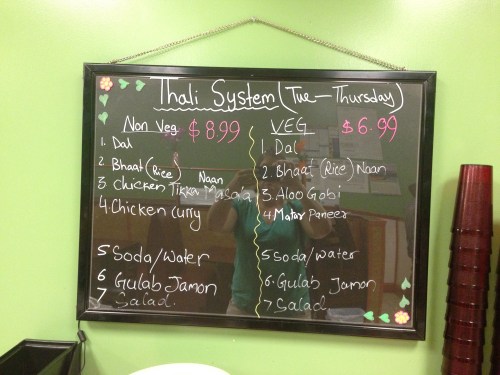 Thali System (Tue-Thursday)
Non Veg $8.99
1. Dal
2. Bhaat (Rice) Naan
3. Chicken Tikka Masala
4. Chicken Curry
5 Soda/Water
6 Gulab Jamon
7 Salad.
VEG $6.99
1. Dal
2. Bhaat (Rice) Naan
3. Aloo Gobi
4. Matar Paneer
5 Soda/Water
6. Gulab Jamon
7 Salad